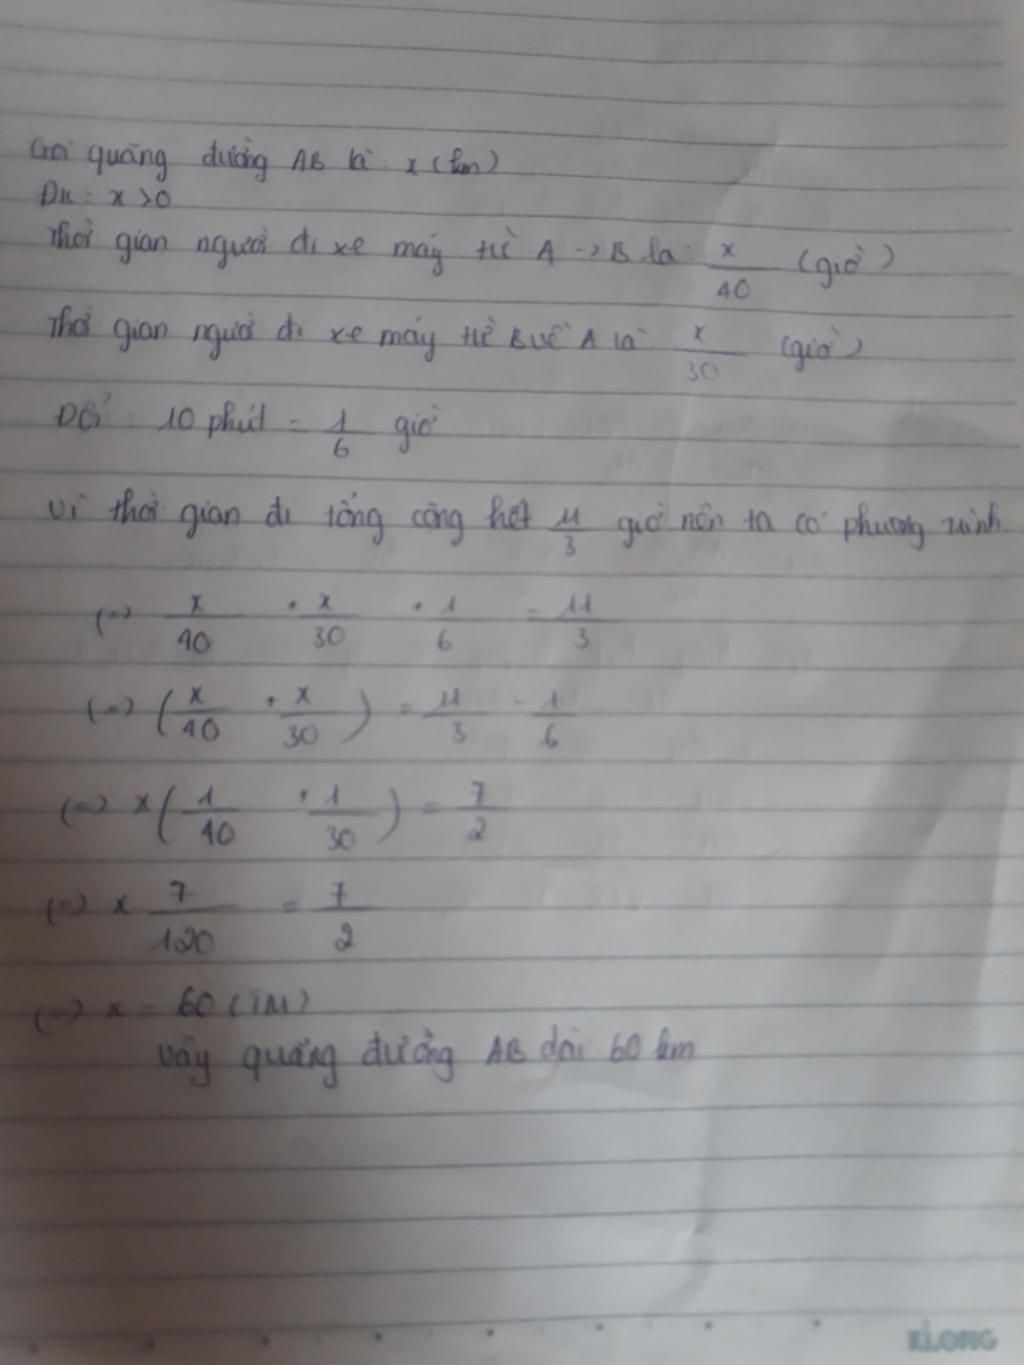 Gọi quãng đường AB là x (km)
ĐK: x > 0
Thời gian người đi xe máy từ A -> B là: x/40 (giờ)
Thời gian người đi xe máy từ B về A là x/30 (giờ)
Đổi: 10 phút = 1/6 giờ
Vì thời gian đi tổng cộng hết 11/3 giờ nên ta có phương trình.
(=) x/40 + x/30 + 1/6 = 11/3
(=) (x/40 + x/30) = 11/3 - 1/6
(=) x(1/40 + 1/30) = 7/2
(=) x 7/120 = 7/2
(=) x = 60 (TM)
Vậy quãng đường AB dài 60 km
KLONG